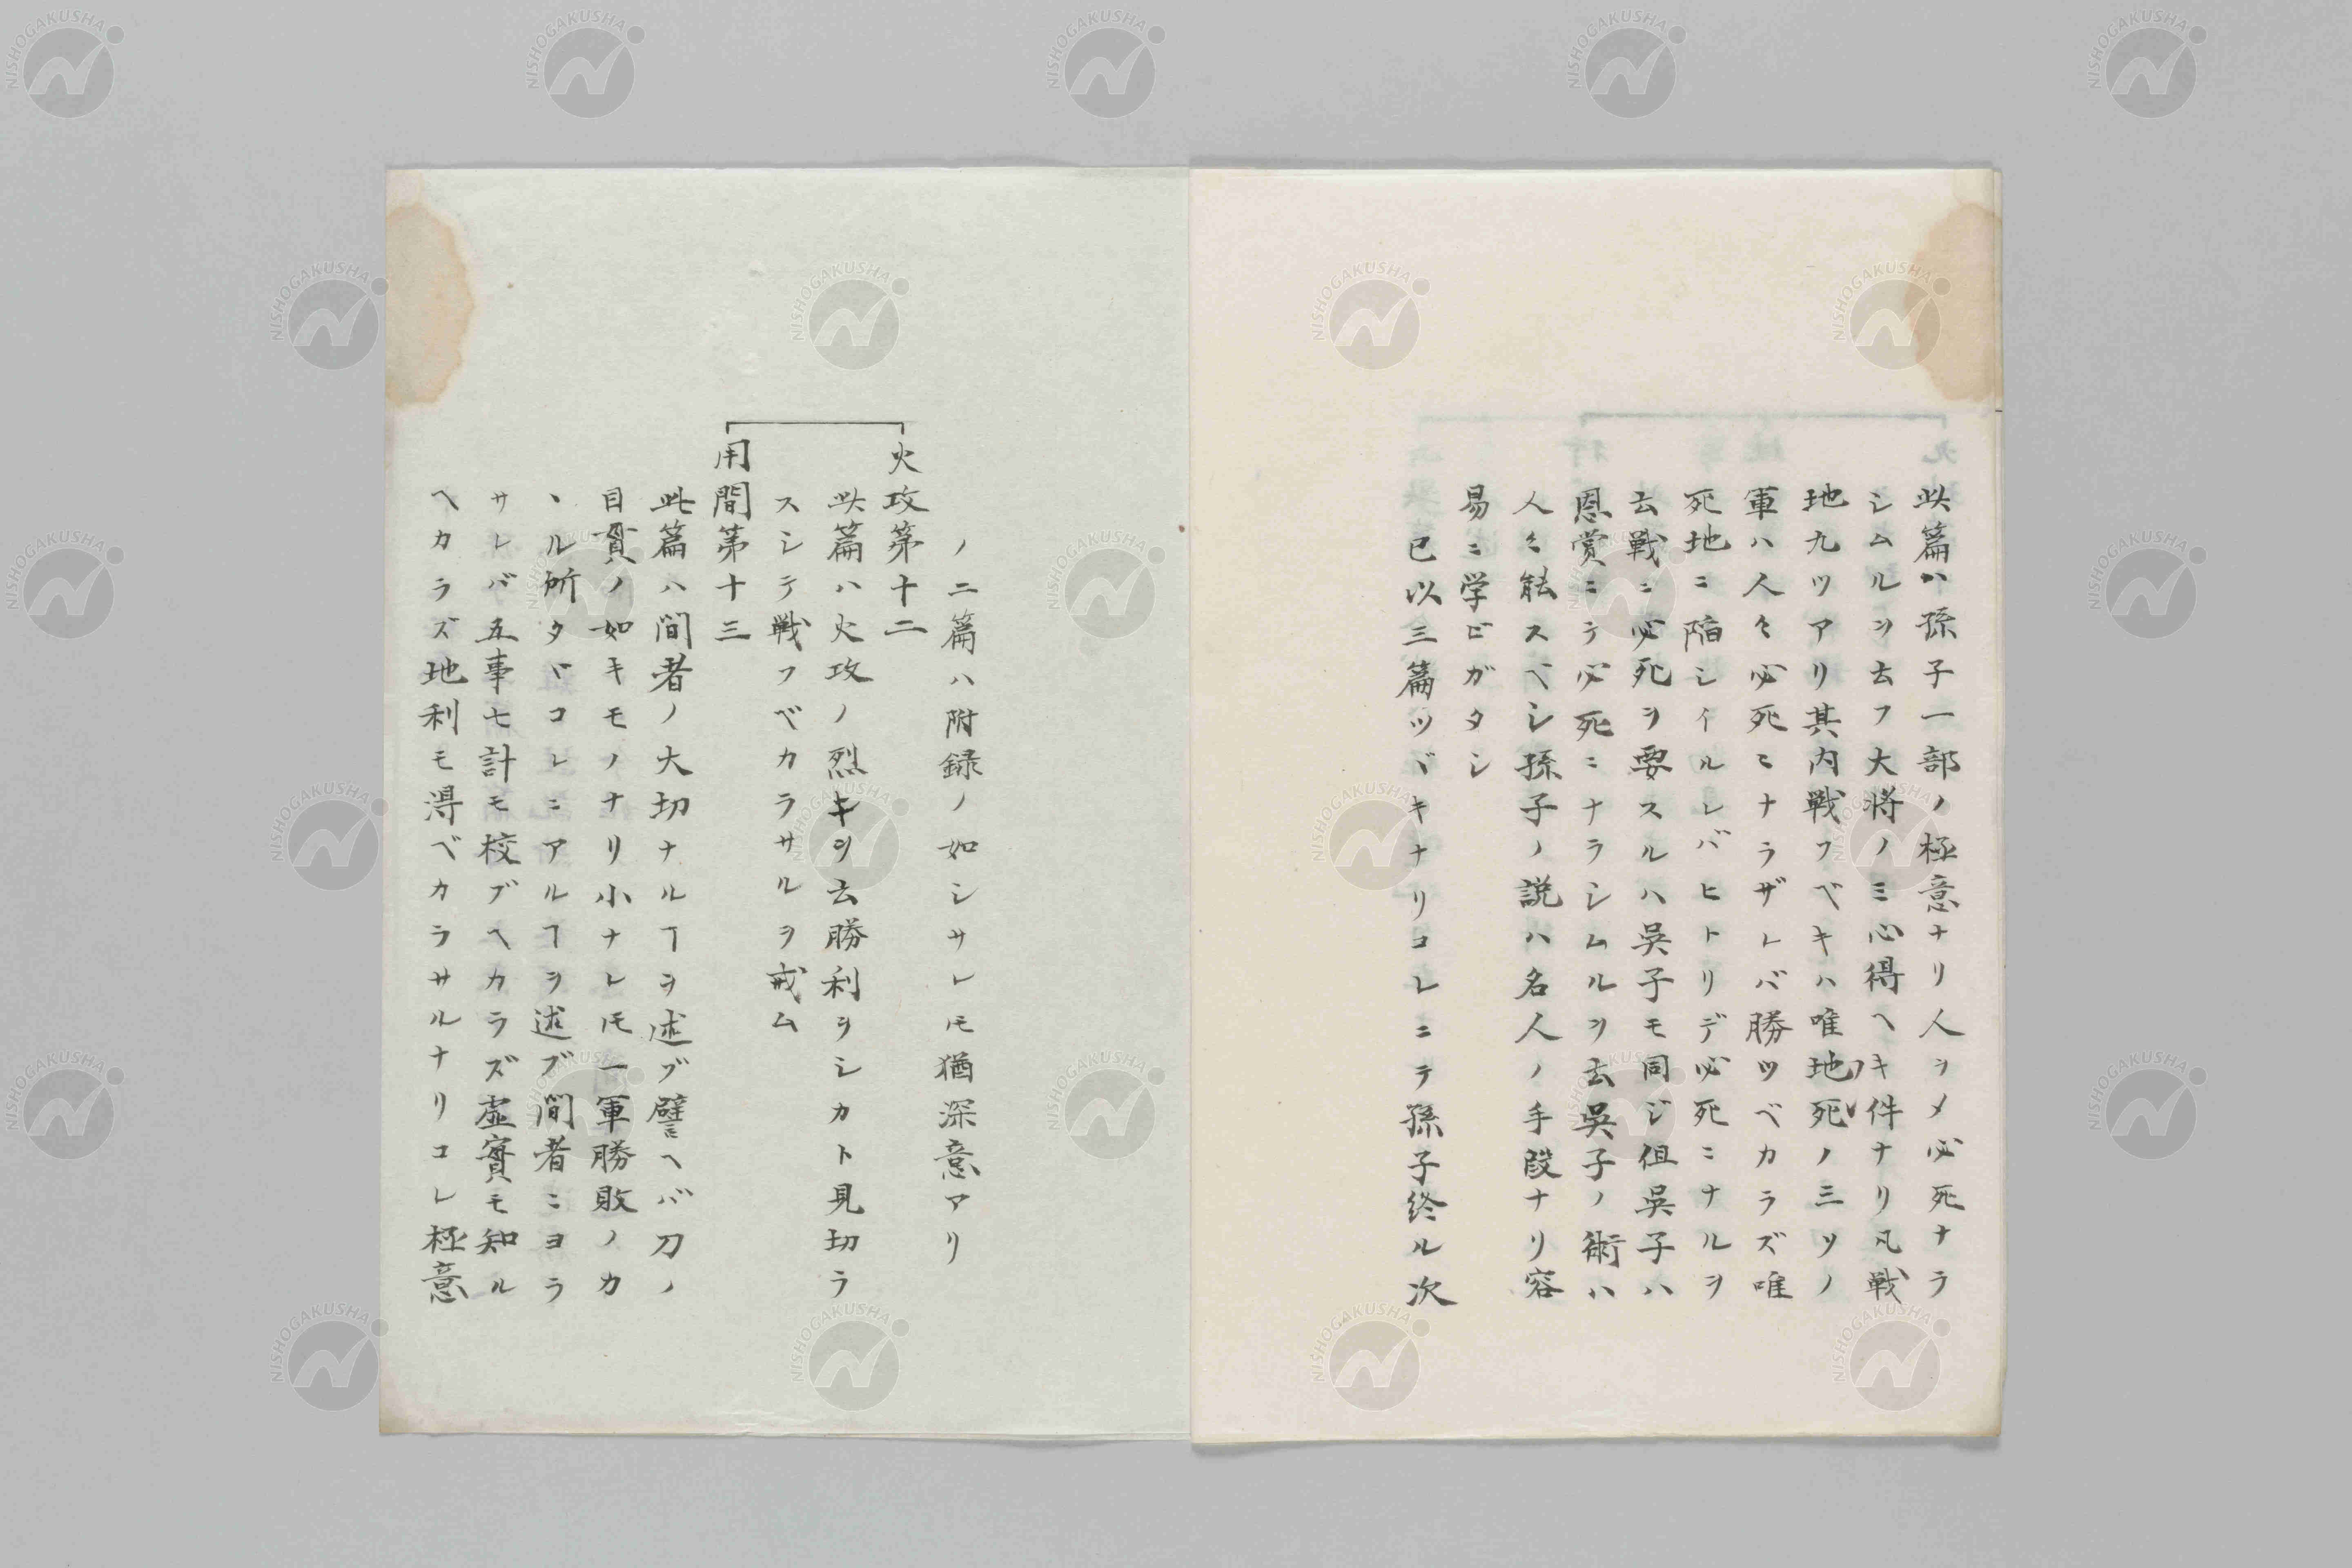 此篇ハ孫子一部ノ極意ナリ人ヲメ必死ナラ
シムルヿヲ云フ大将ノミ心得ヘキ件ナリ凡戦
地九ツアリ其内戦フベキハ唯地死ノ三ツノ
軍ハ人々必死ニナラザレバ勝ツベカラズ唯
死地ニ陥シイルレバヒトリデ必死ニナルヲ
云戦ニ必死ヲ要スルハ呉子モ同ジ但呉子ハ
恩賞ニテ必死ニナラシムルヿヲ云呉子ノ術ハ
人々能スベシ孫子ノ説ハ名人ノ手段ナリ容
易ニ学ビガタシ
已以三篇ツヾキナリコレニテ孫子終ル次
ノ二篇ハ附録ノ如シサレ𪜈猶深意アリ
火攻第十二
此篇ハ火攻ノ烈キヿヲ云勝利ヲシカト見切ラ
スシテ戦フベカラサルヲ戒ム
用間第十三
此篇ハ間者ノ大切ナルヿヲ述ブ譬ヘバ刀ノ
目貫ノ如キモノナリ小ナレ𪜈一軍勝敗ノカ
ヽル所タヾコレニアルヿヲ述ブ間者ニヨラ
サレバ五事七計モ校ブヘカラズ虚實モ知ル
ヘカラズ地利モ得ベカラサルナリコレ極意
NISHOGAKUSHA